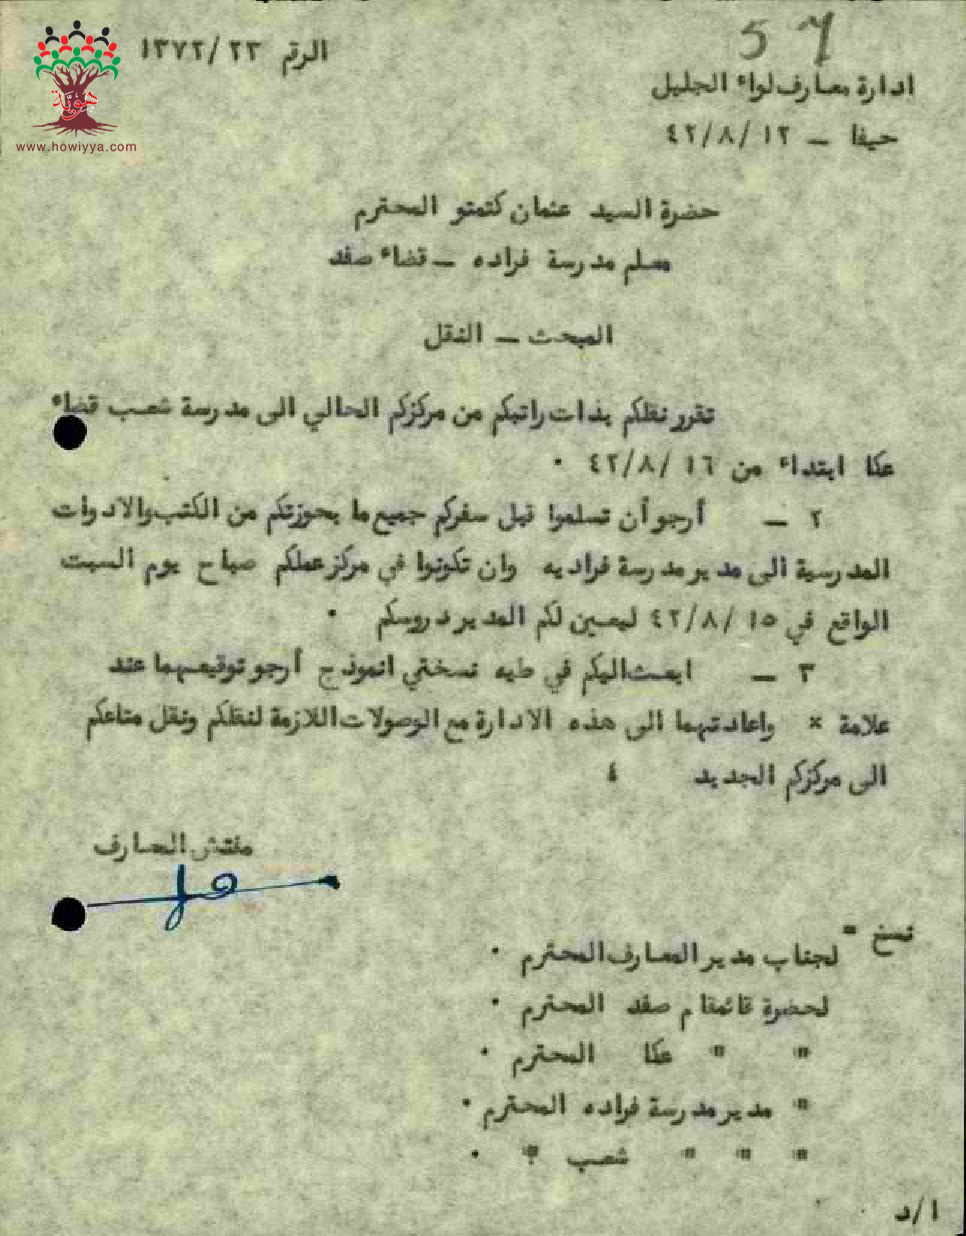 57
الرقم ١٣٧٢/٢٣
هوية
www.howiyya.com
ادارة معارف لواء الجليل
حيفا – ٤٢/٨/١٢
حضرة السيد عثمان كتمتو المحترم
معلم مدرسة فراده – قضاء صفد
المبحث – النقل
تقرر نقلكم بذات راتبكم من مركزكم الحالي الى مدرسة شعب قضاء
عكا ابتداء من ٤٢/٨/١٦ ٠
٢ – أرجو أن تسلموا قبل سفركم جميع ما بحوزتكم من الكتب والادوات
المدرسية الى مدير مدرسة فراديه وان تكونوا في مركز عملكم صباح يوم السبت
الواقع في ٤٢/٨/١٥ ليعين لكم المدير دروسكم ٠
٣ – ابعث اليكم في طيه نسختي انموذج أرجو توقيعهما عند
علامة × واعادتهما الى هذه الادارة مع الوصولات اللازمة لنقلكم ونقل متاعكم
الى مركزكم الجديد ٤
مفتش المعارف
نسخ =
لجناب مدير المعارف المحترم ٠
لحضرة قائمقام صفد المحترم ٠
" " عكا المحترم ٠
" مدير مدرسة فراده المحترم ٠
" " " شعب " ٠
ا/د